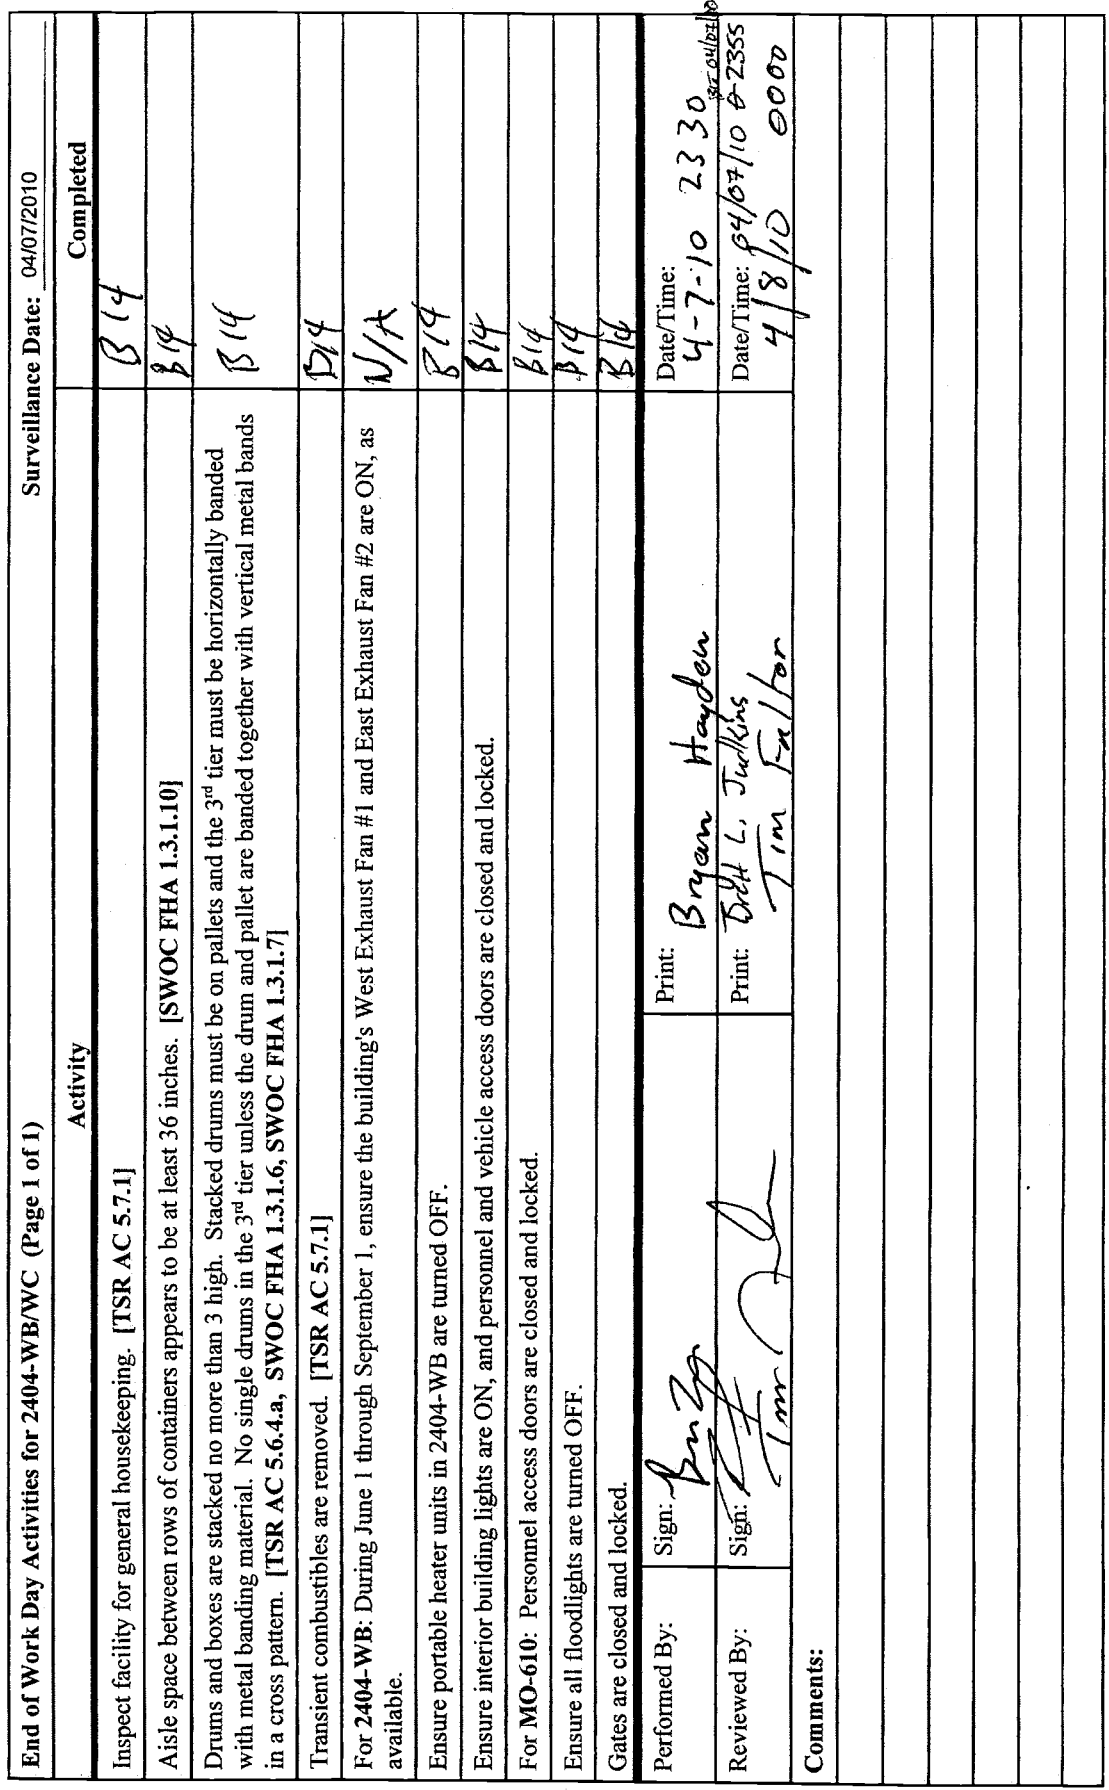 End of Work Day Activities for 2404-WB/WC (Page 1 of 1) Surveillance Date: 04/07/2010
Activity Completed
Inspect facility for general housekeeping. [TSR AC 5.7.1]
Aisle space between rows of containers appears to be at least 36 inches. [SWOC FHA 1.3.1.10]
Drums and boxes are stacked no more than 3 high. Stacked drums must be on pallets and the 3rd tier must be horizontally banded
with metal banding material. No single drums in the 3rd tier unless the drum and pallet are banded together with vertical metal bands
in a cross pattern. [TSR AC 5.6.4.a, SWOC FHA 1.3.1.6, SWOC FHA 1.3.1.7]
Transient combustibles are removed. [TSR AC 5.7.1]
For 2404-WB: During June 1 through September 1, ensure the building's West Exhaust Fan #1 and East Exhaust Fan #2 are ON, as N/A
available.
Ensure portable heater units in 2404-WB are turned OFF.
Ensure interior building lights are ON, and personnel and vehicle access doors are closed and locked.
For MO-610: Personnel access doors are closed and locked.
Ensure all floodlights are turned OFF.
Gates are closed and locked.
Performed By: Sign: Print: Bryan Hayden Date/Time: 4-7-10 2330
Reviewed By: Sign: Print: L. Judkins Date/Time: 04/07/10 2355
Tim 4/8/10 0000
Comments: